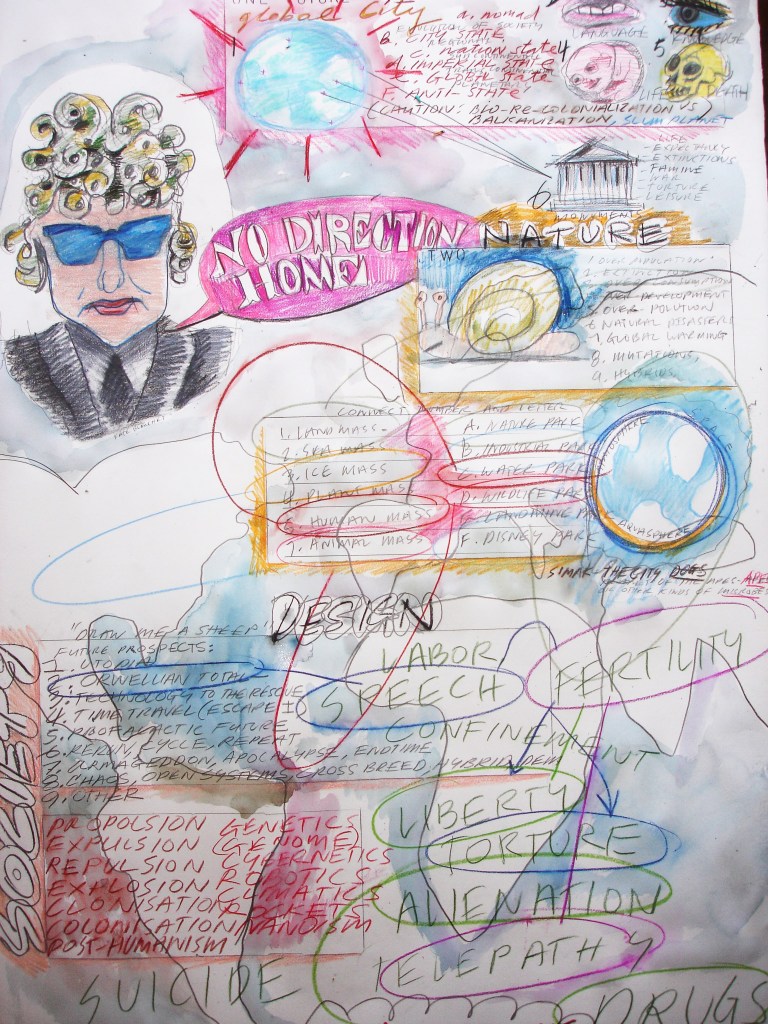 ONE FUTURE
global City
a. nomad
EVOLUTION OF SOCIETY
B. CITY STATE
C. nation state
d. IMPERIAL STATE
E. GLOBAL State
F. ANTI-STATE?
(CAUTION: BIO-RE-COLONIALIZATION VS
BALKANIZATION, SLUM PLANET
LANGUAGE
4
5
LIFE
DEATH
6.
MONUMENT
LIFE
- EXPECTANCY
- EXTINCTIONS
- FAMINE
- WAR
- TORTURE
LEISURE
NO DIRECTION
HOME!
NATURE
TWO
1. OVER POPULATION
4. OVER DEVELOPMENT
5. OVER POLUTION
6. NATURAL DISASTERS
7. GLOBAL WARMING
8. MUTATIONS,
9. HYBRIDS
CONNECT NUMBER AND LETTER
1. LAND MASS
2. SEA MASS
3. ICE MASS
4. PLANT MASS
5. HUMAN MASS
7. ANIMAL MASS
A. NATURE PARK
B. INDUSTRIAL PARK
C. WATER PARK
D. WILDLIFE PARK
PARK
F. DISNEY PARK
AQUASPHERE
SIMAK-THE CITY DOGS
DESIGN
"DRAW ME A SHEEP"
FUTURE PROSPECTS:
1. UTOPIA
2. ORWELLIAN TOTAL
3. TECHNOLOGY TO THE RESCUE
4. TIME TRAVEL (ESCAPE I)
FUTURE
6. RERUN, CYCLE, REPEAT
7. ARMAGEDDON, APOCALYPSE, ENDTIME
8. CHAOS, OPEN SYSTEMS, CROSS BREED, HYBRID
9. OTHER
SOCIETY
LABOR
SPEECH
FERTILITY
CONFINEMENT
LIBERTY
TORTURE
ALIENATION
TELEPATHY
DRUGS
PROPOLSION GENETIC
EXPULSION (GENOME)
REPULSION CYBERNETICS
EXPLOSION ROBOTICS
CLONISATION CLIMATICS
COLONISATION
POST-HUMANISM
SUICIDE